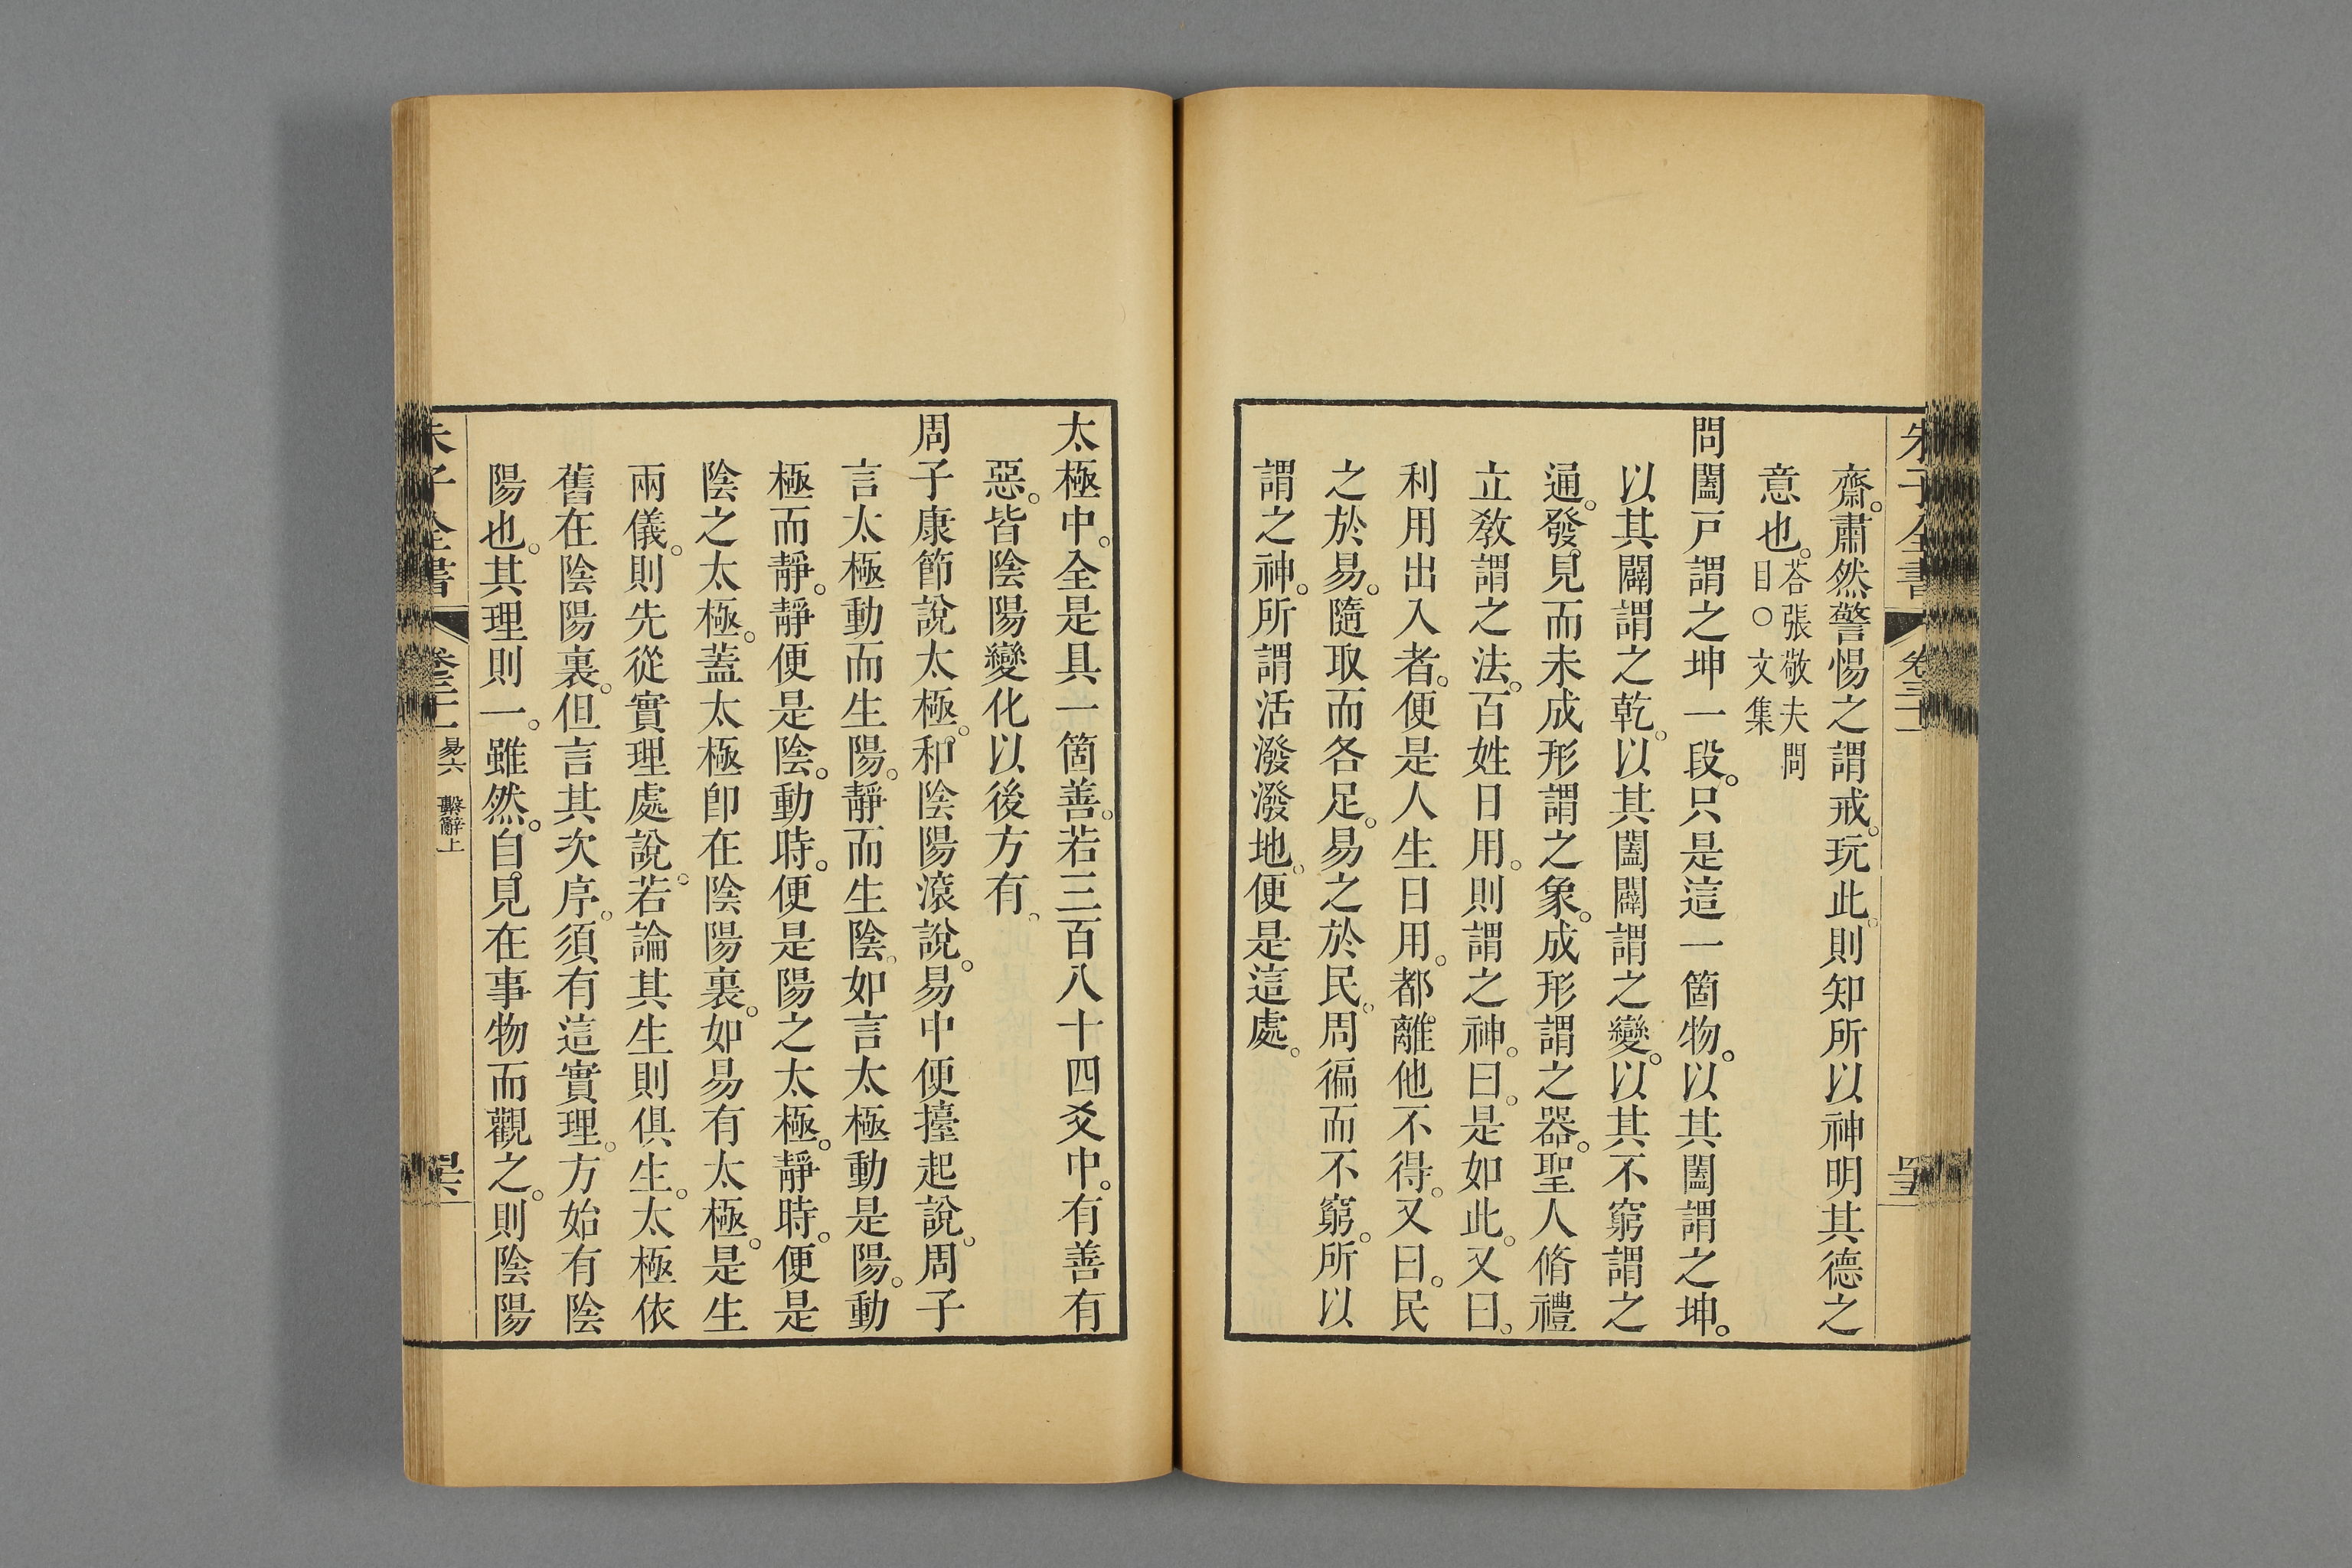 朱子全書 卷三十一
齋。肅然警惕之謂戒。玩此。則知所以神明其德之
意也。荅張敬夫問目○文集
問闔戸謂之坤一段。只是這一箇物。以其闔謂之坤。
以其闢謂之乾。以其闔闢謂之變。以其不窮謂之
通。發見而未成形謂之象。成形謂之器。聖人脩禮
立敎謂之法。百姓日用。則謂之神。曰。是如此。又曰。
利用出入者。便是人生日用。都離他不得。又曰。民
之於易。隨取而各足。易之於民。周徧而不窮。所以
謂之神。所謂活潑潑地。便是這處。
太極中。全是具一箇善。若三百八十四爻中。有善有
惡。皆陰陽變化以後方有。
周子康節說太極。和陰陽滾說。易中便擡起說。周子
言太極動而生陽。靜而生陰。如言太極動是陽。動
極而靜。靜便是陰。動時。便是陽之太極。靜時。便是
陰之太極。蓋太極卽在陰陽裏。如易有太極。是生
兩儀。則先從實理處說。若論其生則俱生。太極依
舊在陰陽裏。但言其次序。須有這實理。方始有陰
陽也。其理則一。雖然。自見在事物而觀之。則陰陽
朱子全書 卷三十一 易六 繫辭上